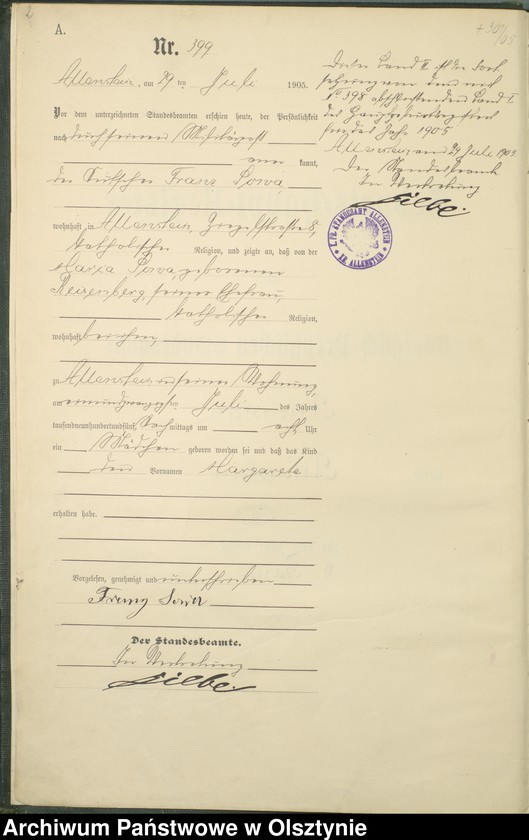 2
+ 30/7 05
A.
Nr. 399
Allenstein, am 29 ten Juli 1905.
Vor dem unterzeichneten Standesbeamten erschien heute, der Persönlichkeit
nach
kannt,
der Kutscher Franz Sowa
wohnhaft in Allenstein, Ziegelstraße 8,
katholischer Religion, und zeigte an, daß von der
Maria Sowa, geborenen
seiner Ehefrau,
katholischer Religion,
wohnhaft bei ihm,
zu Allenstein in seiner Wohnung,
am ten Juli des Jahres
tausendneunhundertundfünf, Nachmittags um acht Uhr
ein Mädchen geboren worden sei und daß das Kind
den Vornamen Margarete
erhalten habe.
Vorgelesen, genehmigt und unterschrieben
Franz Sowa
Der Standesbeamte.
In Vertretung
Dieser Band II ist die Fort
setzung von dem mit
№ 398 abschließenden Band I
des Hauptregisters
für das Jahr 1905
Allenstein am 29 Juli 1905
Der Standesbeamte
In Vertretung
K. PR. STANDESAMT ALLENSTEIN
KR. ALLENSTEIN
Archiwum Państwowe w Olsztynie